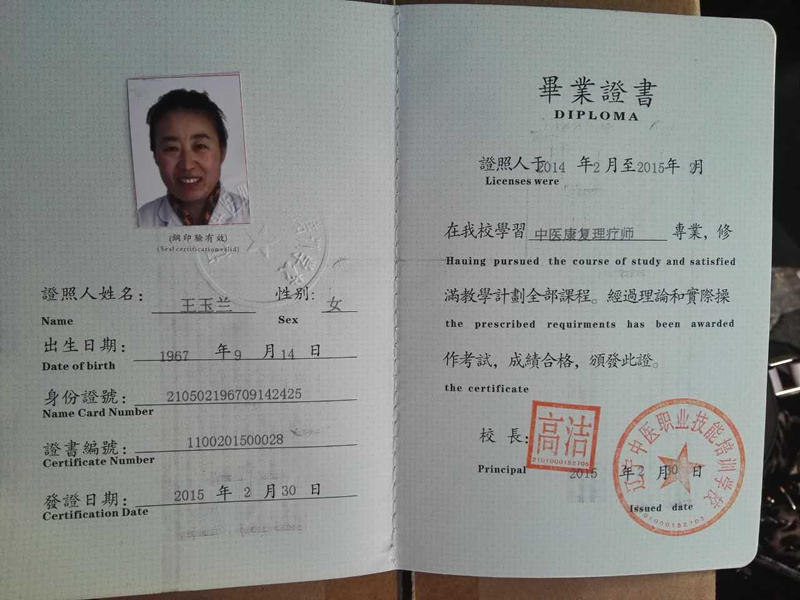 (鋼印驗有效)
(Seal certification valid)
證照人姓名: 王玉兰 性别: 女
Name Sex
出生日期: 1967 年 9 月 14 日
Date of birth
身份證號: 210502196709142425
Name Card Number
證書編號: 1100201500028
Certificate Number
發證日期: 2015 年 2 月 30 日
Certification Date
畢業證書
DIPLOMA
證照人于2014 年2 月至2015年 月
Licenses were
在我校學習 中医康复理疗师 專業,修
Hauing pursued the course of study and satisfied
滿教學計劃全部課程。經過理論和實際操
the prescribed requirments has been awarded
作考試,成績合格,頒發此證。
the certificate
校 長:
高洁
2101000152705
Principal 2015 年 2 月 日
Issued date
辽宁中医职业技能培训学校